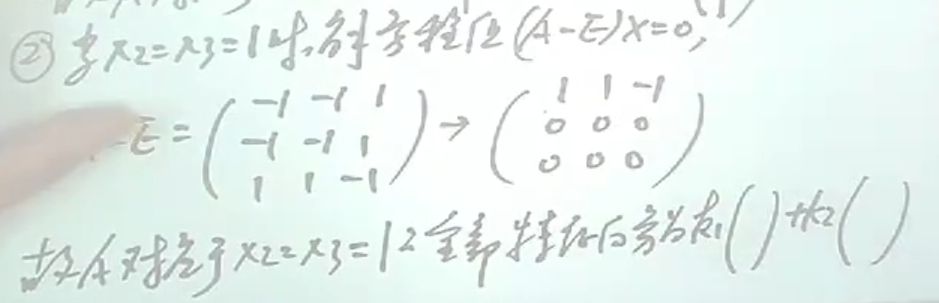 ② 当λ2=λ3=1时,解方程组(A-E)x=0,
-E=(-1 -1 1
-1 -1 1
1 1 -1)→(1 1 -1
0 0 0
0 0 0)
故A对应于λ2=λ3=1之全部特征向量为k1( )+k2( )